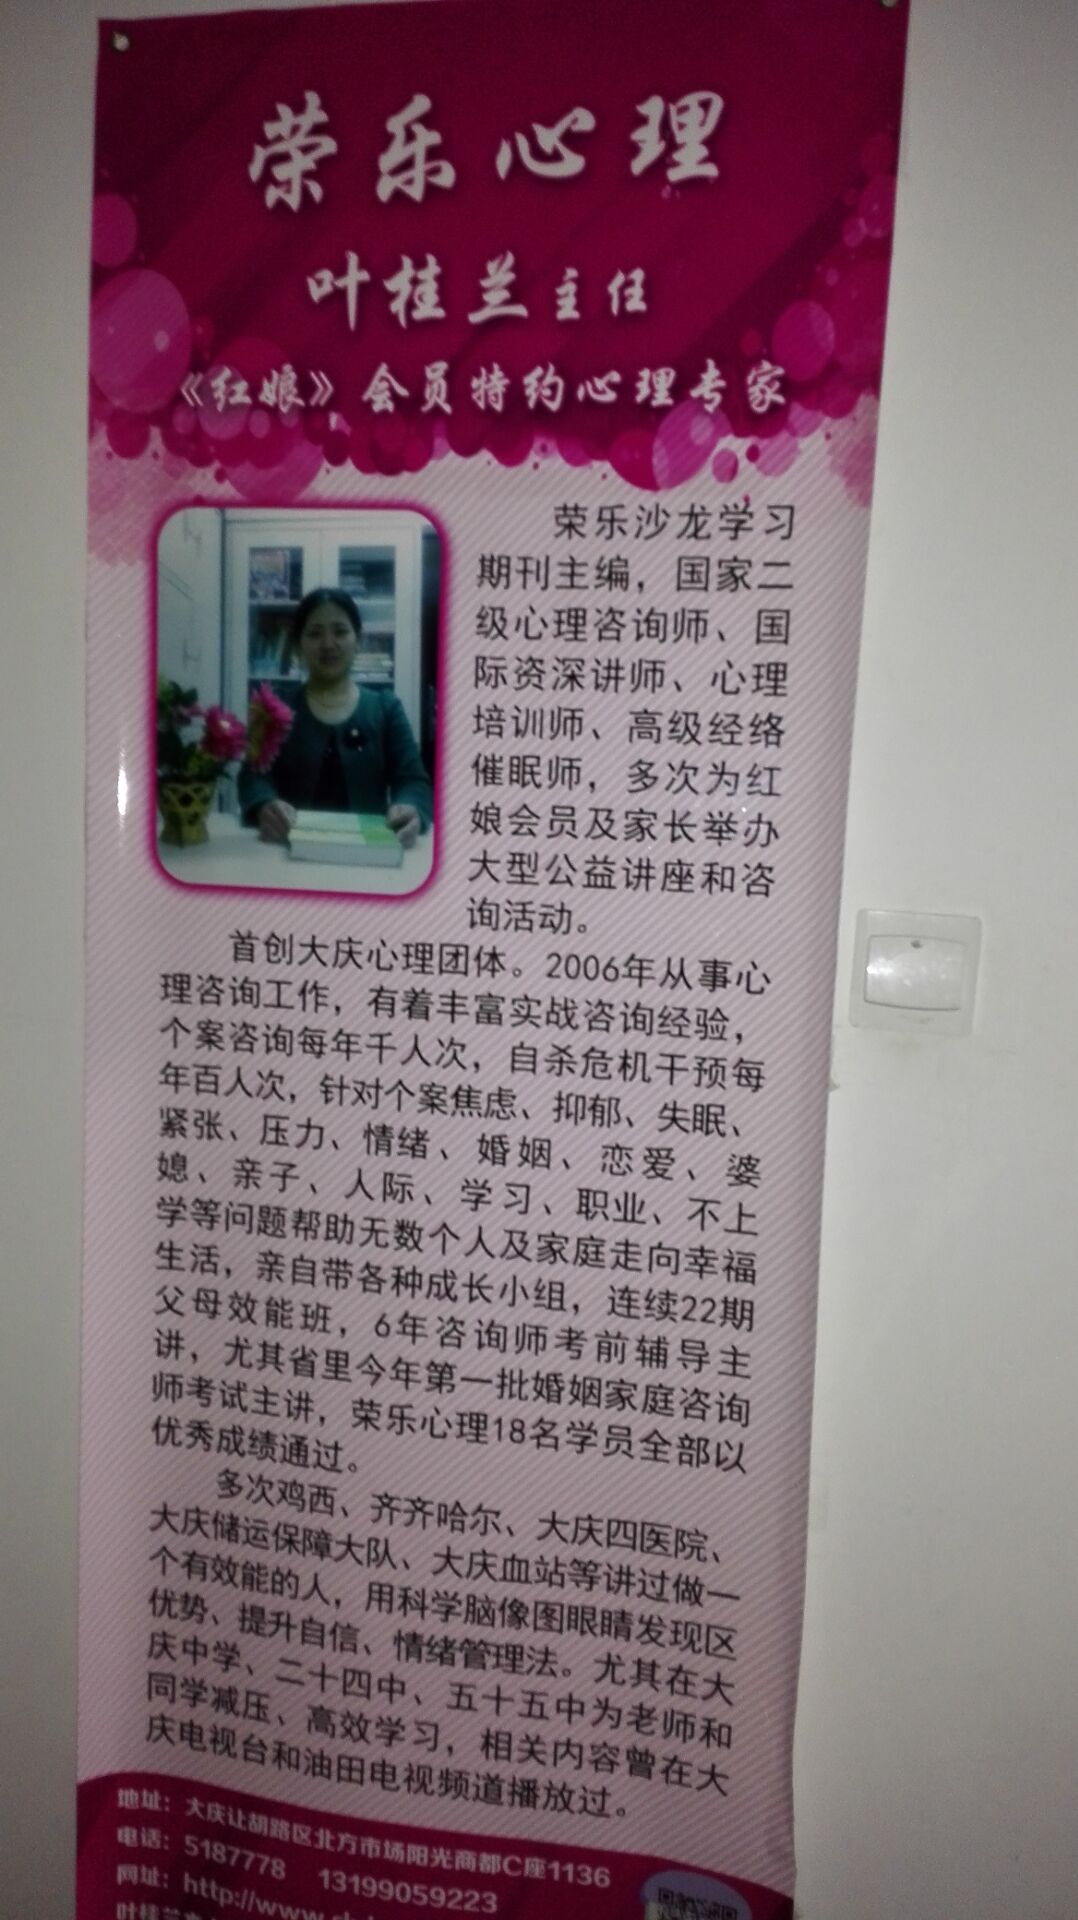 荣乐心理
叶桂兰主任
《红娘》会员特约心理专家
荣乐沙龙学习
期刊主编，国家二
级心理咨询师、国
际资深讲师、心理
培训师、高级经络
催眠师，多次为红
娘会员及家长举办
大型公益讲座和咨
询活动。
首创大庆心理团体。2006年从事心
理咨询工作，有着丰富实战咨询经验，
个案咨询每年千人次，自杀危机干预每
年百人次，针对个案焦虑、抑郁、失眠、
紧张、压力、情绪、婚姻、恋爱、婆
媳、亲子、人际、学习、职业、不上
学等问题帮助无数个人及家庭走向幸福
生活，亲自带各种成长小组，连续22期
父母效能班，6年咨询师考前辅导主
讲，尤其省里今年第一批婚姻家庭咨询
师考试主讲，荣乐心理18名学员全部以
优秀成绩通过。
多次鸡西、齐齐哈尔、大庆四医院、
大庆储运保障大队、大庆血站等讲过做一
个有效能的人，用科学脑像图眼睛发现区
优势、提升自信、情绪管理法。尤其在大
庆中学、二十四中、五十五中为老师和
同学减压、高效学习，相关内容曾在大
庆电视台和油田电视频道播放过。
地址：大庆让胡路区北方市场阳光商都C座1136
电话：5187778 13199059223
网址：http://www.
叶桂兰